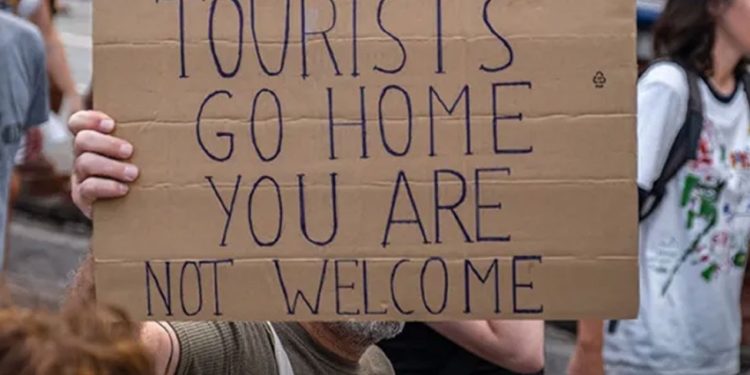 TOURISTS
GO HOME
YOU ARE
NOT WELCOME